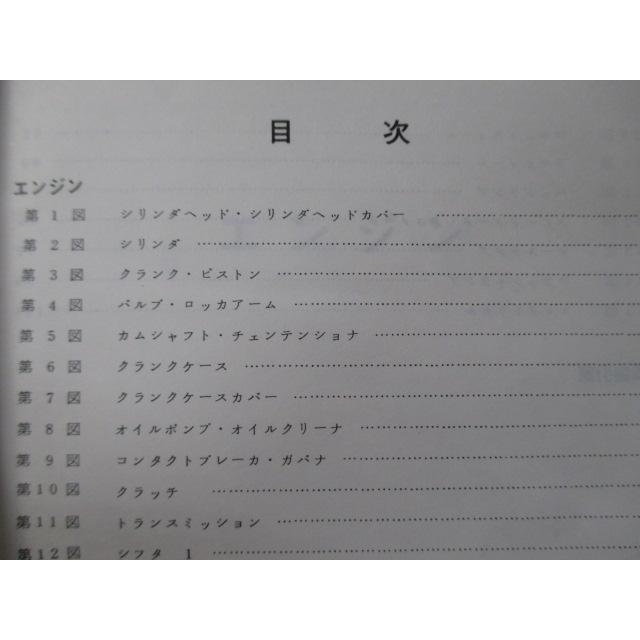 目次
エンジン
第1図 シリンダヘッド・シリンダヘッドカバー ……………
第2図 シリンダ ……………
第3図 クランク・ピストン ……………
第4図 バルブ・ロッカアーム ……………
第5図 カムシャフト・チェンテンショナ ……………
第6図 クランクケース ……………
第7図 クランクケースカバー ……………
第8図 オイルポンプ・オイルクリーナ ……………
第9図 コンタクトブレーカ・ガバナ ……………
第10図 クラッチ ……………
第11図 トランスミッション ……………
第12図 シフタ 1 ……………